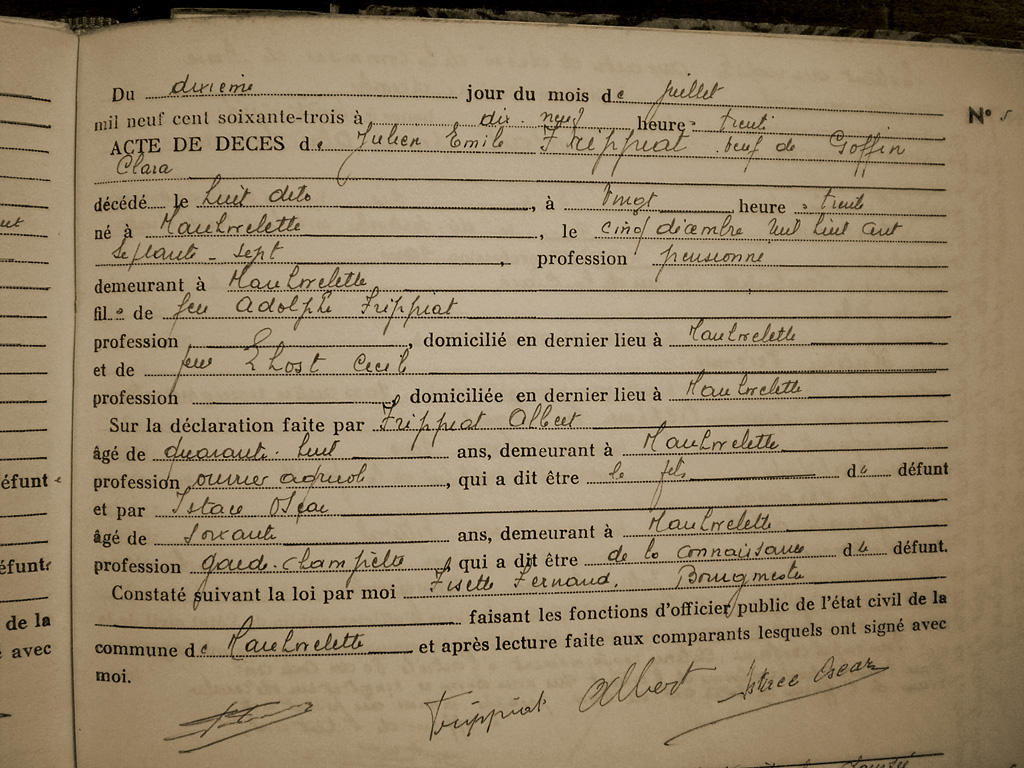 Du dixième jour du mois de juillet
N° 5
mil neuf cent soixante-trois à dix-neuf heures trente
ACTE DE DECES de Julien Emile Frippiat veuf de Goffin
Clara
décédé le huit dito, à vingt heures trente
né à Hanbrelette, le cinq décembre mil huit cent
septante-sept, profession pensionné
demeurant à
fils de feu Adolphe Frippiat
profession, domicilié en dernier lieu à
et de feue Lhost Cecil
profession domiciliée en dernier lieu à
Sur la déclaration faite par Frippiat Albert
âgé de quarante-huit ans, demeurant à
profession ouvrier agricole, qui a dit être le fils du défunt
et par Istace Oscar
âgé de soixante ans, demeurant à
profession garde-champêtre, qui a dit être de la connaissance du défunt.
Constaté suivant la loi par moi Fisette Fernand, Bourgmestre
faisant les fonctions d'officier public de l'état civil de la
commune de et après lecture faite aux comparants lesquels ont signé avec
moi.
Frippiat Albert Istace Oscar
éfunt
éfunt
de la
avec